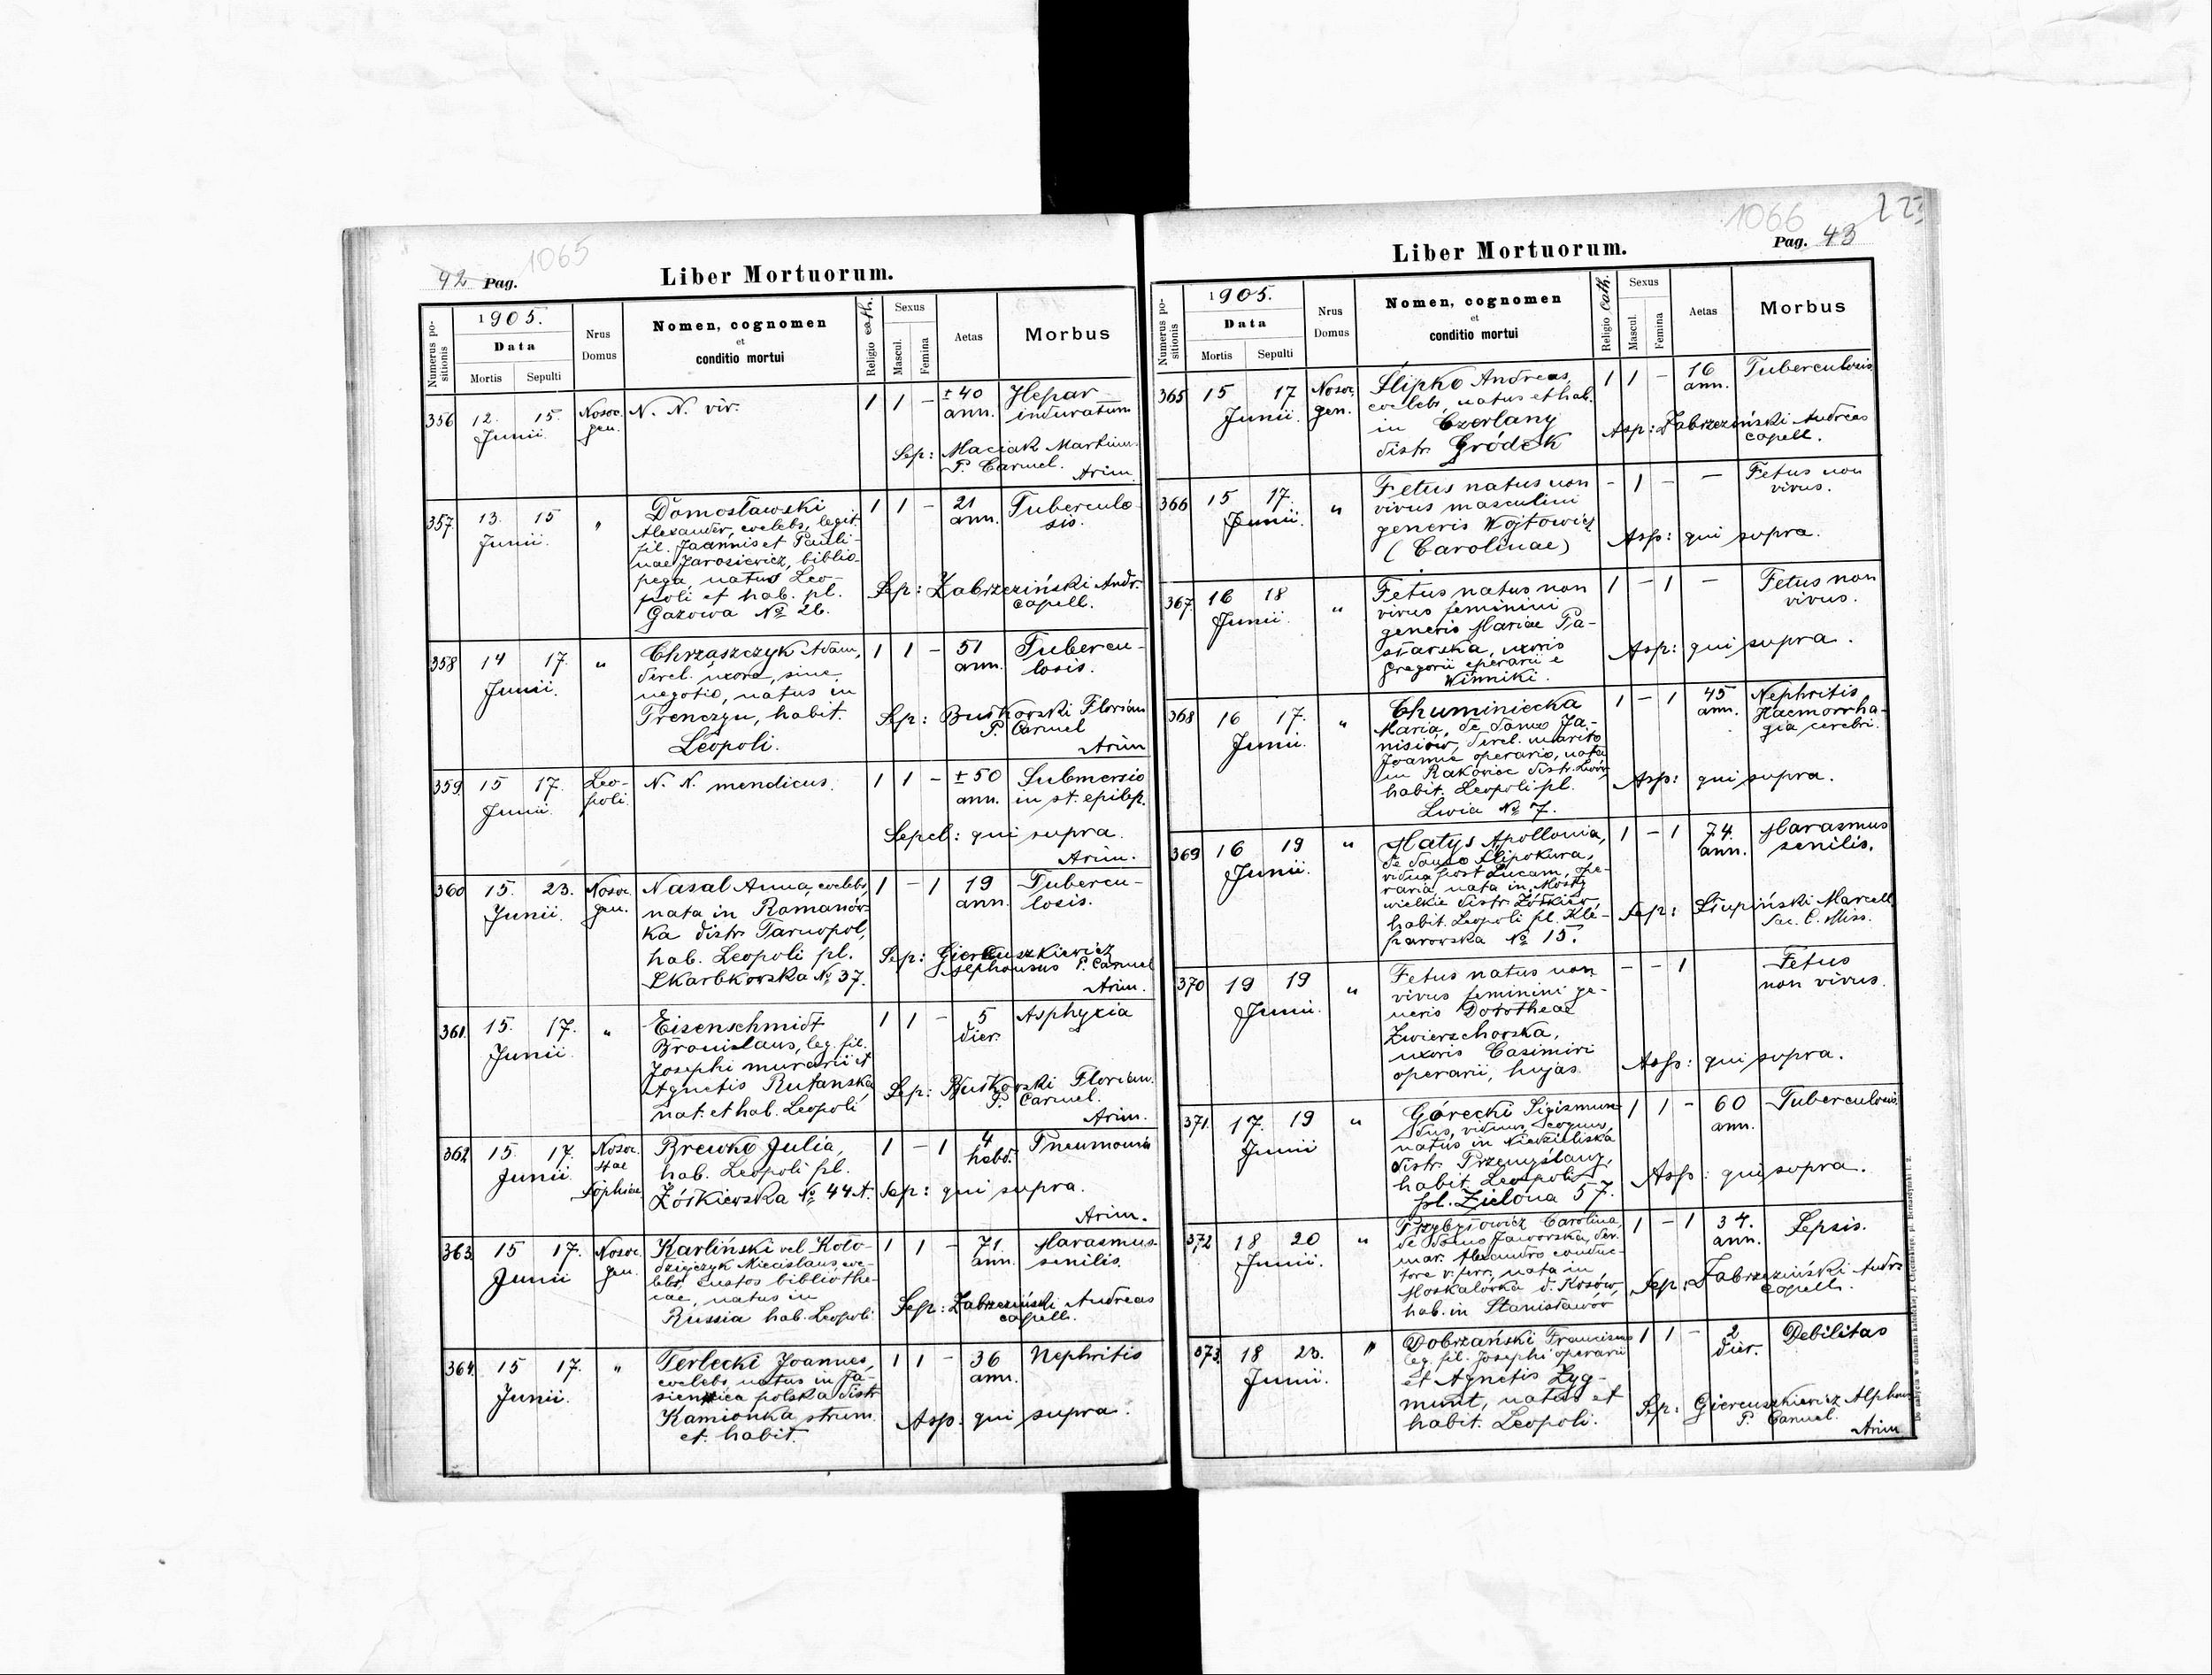 1065
42 Pag.
Liber Mortuorum.
Numerus positionis
1905.
Data
Mortis
Sepulti
Nrus
Domus
Nomen, cognomen
et
conditio mortui
Religio cath.
Sexus
Mascul.
Femina
Aetas
Morbus
356 12. 15. Nosoc. N. N. vir. 1 1 - ±40 Hepar
Junii gen. ann. induratum
Sep: Maciak Martin.
P. Carmel.
Arim.
357. 13. 15 " Domosławski 1 1 - 21 Tuberculo-
Junii. Alexander, coelebs, legit. ann. sis.
fil. Joannis et Pauli-
nae Jarosiewicz, biblio-
pega, natus Leo-
poli et hab. pl. Sep: Zabrzeziński Andr.
Gazowa № 26. capell.
358 14 17. " Chrząszczyk Adam, 1 1 - 51 Tubercu-
Junii. derel. uxore, sine ann. losis.
negotio, natus in
Trenczyn, habit. Sep: Butkowski Florian
Leopoli. P. Carmel
Arim
359. 15 17. Leo- N. N. mendicus. 1 1 - ±50 Submersio
Junii poli. ann. in st. epilep.
Sepel: qui supra.
Arim.
360 15. 23. Nosoc. Nasal Anna, coelebs, 1 - 1 19 Tubercu-
Junii. gen. nata in Romanów- ann. losis.
ka distr. Tarnopol,
hab. Leopoli pl. Sep: Giercuszkiewicz
Skarbkowska № 37. Alphonsus P. Carmel
Arim.
361. 15. 17. " Eisenschmidt 1 1 - 5 Asphyxia
Junii Bronislaus, leg. fil. dier.
Josephi murarii et
Agnetis Rutanska, Sep: Butkowski Florian.
nat. et hab. Leopoli P. Carmel.
Arim.
362 15. 17. Nosoc. Brewko Julia, 1 - 1 4 Pneumonia
Junii. Stae hab. Leopoli pl. hebd.
Sophiae Żółkiewska № 44 A. Sep: qui supra.
Arim.
363. 15 17. Nosoc. Karliński vel Koło- 1 1 - 71 Marasmus
Junii gen. dziejczyk Miecislaus, coe- ann. senilis.
lebs, custos bibliothe-
cae, natus in Sep: Zabrzeziński Andreas
Russia hab. Leopoli capell.
364. 15 17. " Terlecki Joannes, 1 1 - 36 Nephritis
Junii. coelebs, natus in Ja- ann.
sienica polska distr.
Kamionka strum. Asp. qui supra.
et habit.
1066
223
Pag. 43
Liber Mortuorum.
Numerus positionis
1905.
Data
Mortis
Sepulti
Nrus
Domus
Nomen, cognomen
et
conditio mortui
Religio cath.
Sexus
Mascul.
Femina
Aetas
Morbus
365 15 17 Nosoc. Ślipko Andreas, 1 1 - 16 Tuberculosis
Junii. gen. coelebs, natus et hab. ann.
in Czerlany Asp: Zabrzeziński Andreas
distr. Gródek capell.
366 15 17. " Fetus natus non - 1 - - Fetus non
Junii. vivus masculini vivus.
generis Wojtowicz Asp: qui supra.
(Carolinae)
367. 16 18 " Fetus natus non 1 - 1 - Fetus non
Junii. vivus feminini vivus.
generis Mariae Pa-
starska, uxoris Asp: qui supra.
Gregorii operarii e
Winniki.
368 16 17. " Chuminiecka 1 - 1 45 Nephritis
Junii. Maria, de domo Ja- ann. Haemorrha-
nisiów, derel. marito gia cerebri.
Joanne operario, nata
in Rakowiec distr. Lwów, Asp: qui supra.
habit. Leopoli pl.
Lwia № 7.
369 16 19 " Matys Apollonia, 1 - 1 74. Marasmus
Junii. de domo Slipokura, ann. senilis.
vidua post Lucam, ope-
raria, nata in Mosty
wielkie distr. Żółkiew, Sep: Słupiński Marcell
habit. Leopoli pl. Kle- Sac. C. Miss.
parowska № 15.
370 19 19 " Fetus natus non - - 1 Fetus
Junii. vivus feminini ge- non vivus.
neris Dorotheae
Zwierzchowska,
uxoris Casimiri Asp: qui supra.
operarii, hujas
371. 17. 19 " Górecki Sigismun- 1 1 - 60 Tuberculosis
Junii dus, viduus, coquus, ann.
natus in Niedzieliska
distr. Przemyślany, Asp: qui supra.
habit. Leopoli
pl. Zielona 57.
372 18 20 " Przybyłowicz Carolina, 1 - 1 34. Sepsis.
Junii. de domo Jaworska, der. ann.
mar. Alexandro conduc-
tore v. ferr., nata in Sep: Zabrzeziński Andr.
Moskalówka d. Kosów, capell.
hab. in Stanisławów
373. 18 23. " Dobrzański Franciscus 1 1 - 2 Debilitas
Junii. leg. fil. Josephi operarii dier.
et Agnetis Zyg-
munt, natus et Sep: Giercuszkiewicz Alphons
habit. Leopoli. P. Carmel.
Arim